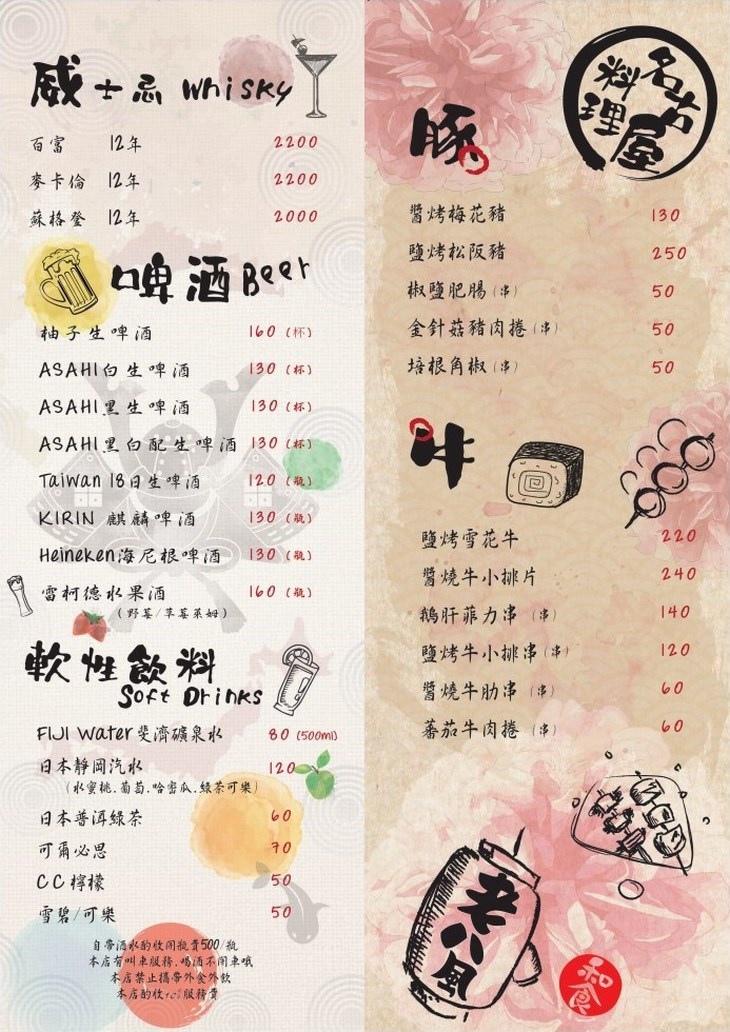 威士忌 Whisky
百富 12年 2200
麥卡倫 12年 2200
蘇格登 12年 2000
啤酒 Beer
柚子生啤酒 160 (杯)
ASAHI白生啤酒 130 (杯)
ASAHI黑生啤酒 130 (杯)
ASAHI黑白配生啤酒 130 (杯)
Taiwan 18日生啤酒 120 (瓶)
KIRIN 麒麟啤酒 130 (瓶)
Heineken海尼根啤酒 130 (瓶)
雷柯德水果酒 160 (瓶)
(野莓/草莓萊姆)
軟性飲料
Soft Drinks
FIJI Water斐濟礦泉水 80 (500ml)
日本靜岡汽水 120
(水蜜桃.葡萄.哈密瓜.綠茶可樂)
日本普洱綠茶 60
可爾必思 70
CC檸檬 50
雪碧/可樂 50
自帶酒水酌收開瓶費500/瓶
本店有叫車服務.喝酒不開車哦
本店禁止攜帶外食外飲
本店酌收 服務費
名古屋
料理
豚
醬烤梅花豬 130
鹽烤松阪豬 250
椒鹽肥腸(串) 50
金針菇豬肉捲(串) 50
培根角椒(串) 50
牛
鹽烤雪花牛 220
醬燒牛小排片 240
鵝肝菲力串 (串) 140
鹽烤牛小排串(串) 120
醬燒牛肋串 (串) 60
蕃茄牛肉捲 (串) 60
老八風
和食